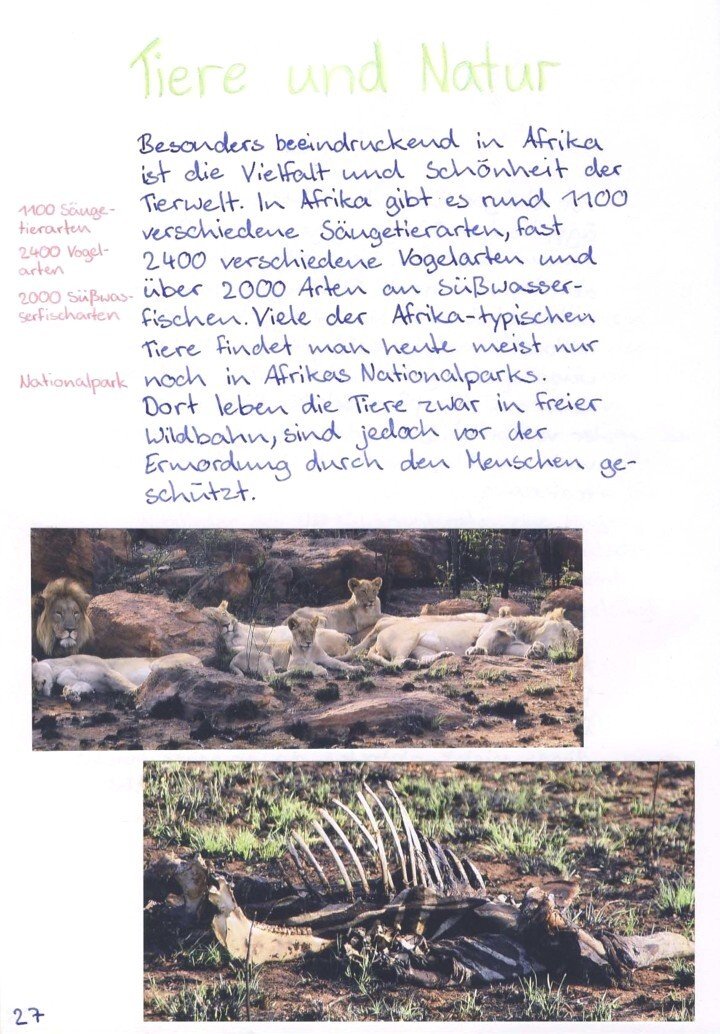 Tiere und Natur
Besonders beeindruckend in Afrika
ist die Vielfalt und Schönheit der
Tierwelt. In Afrika gibt es rund 1100
verschiedene Säugetierarten, fast
2400 verschiedene Vogelarten und
über 2000 Arten an Süßwasser-
fischen. Viele der Afrika-typischen
Tiere findet man heute meist nur
noch in Afrikas Nationalparks.
Dort leben die Tiere zwar in freier
Wildbahn, sind jedoch vor der
Ermordung durch den Menschen ge-
schützt.
1100 Säuge-
tierarten
2400 Vogel-
arten
2000 Süßwas-
serfischarten
Nationalpark
27